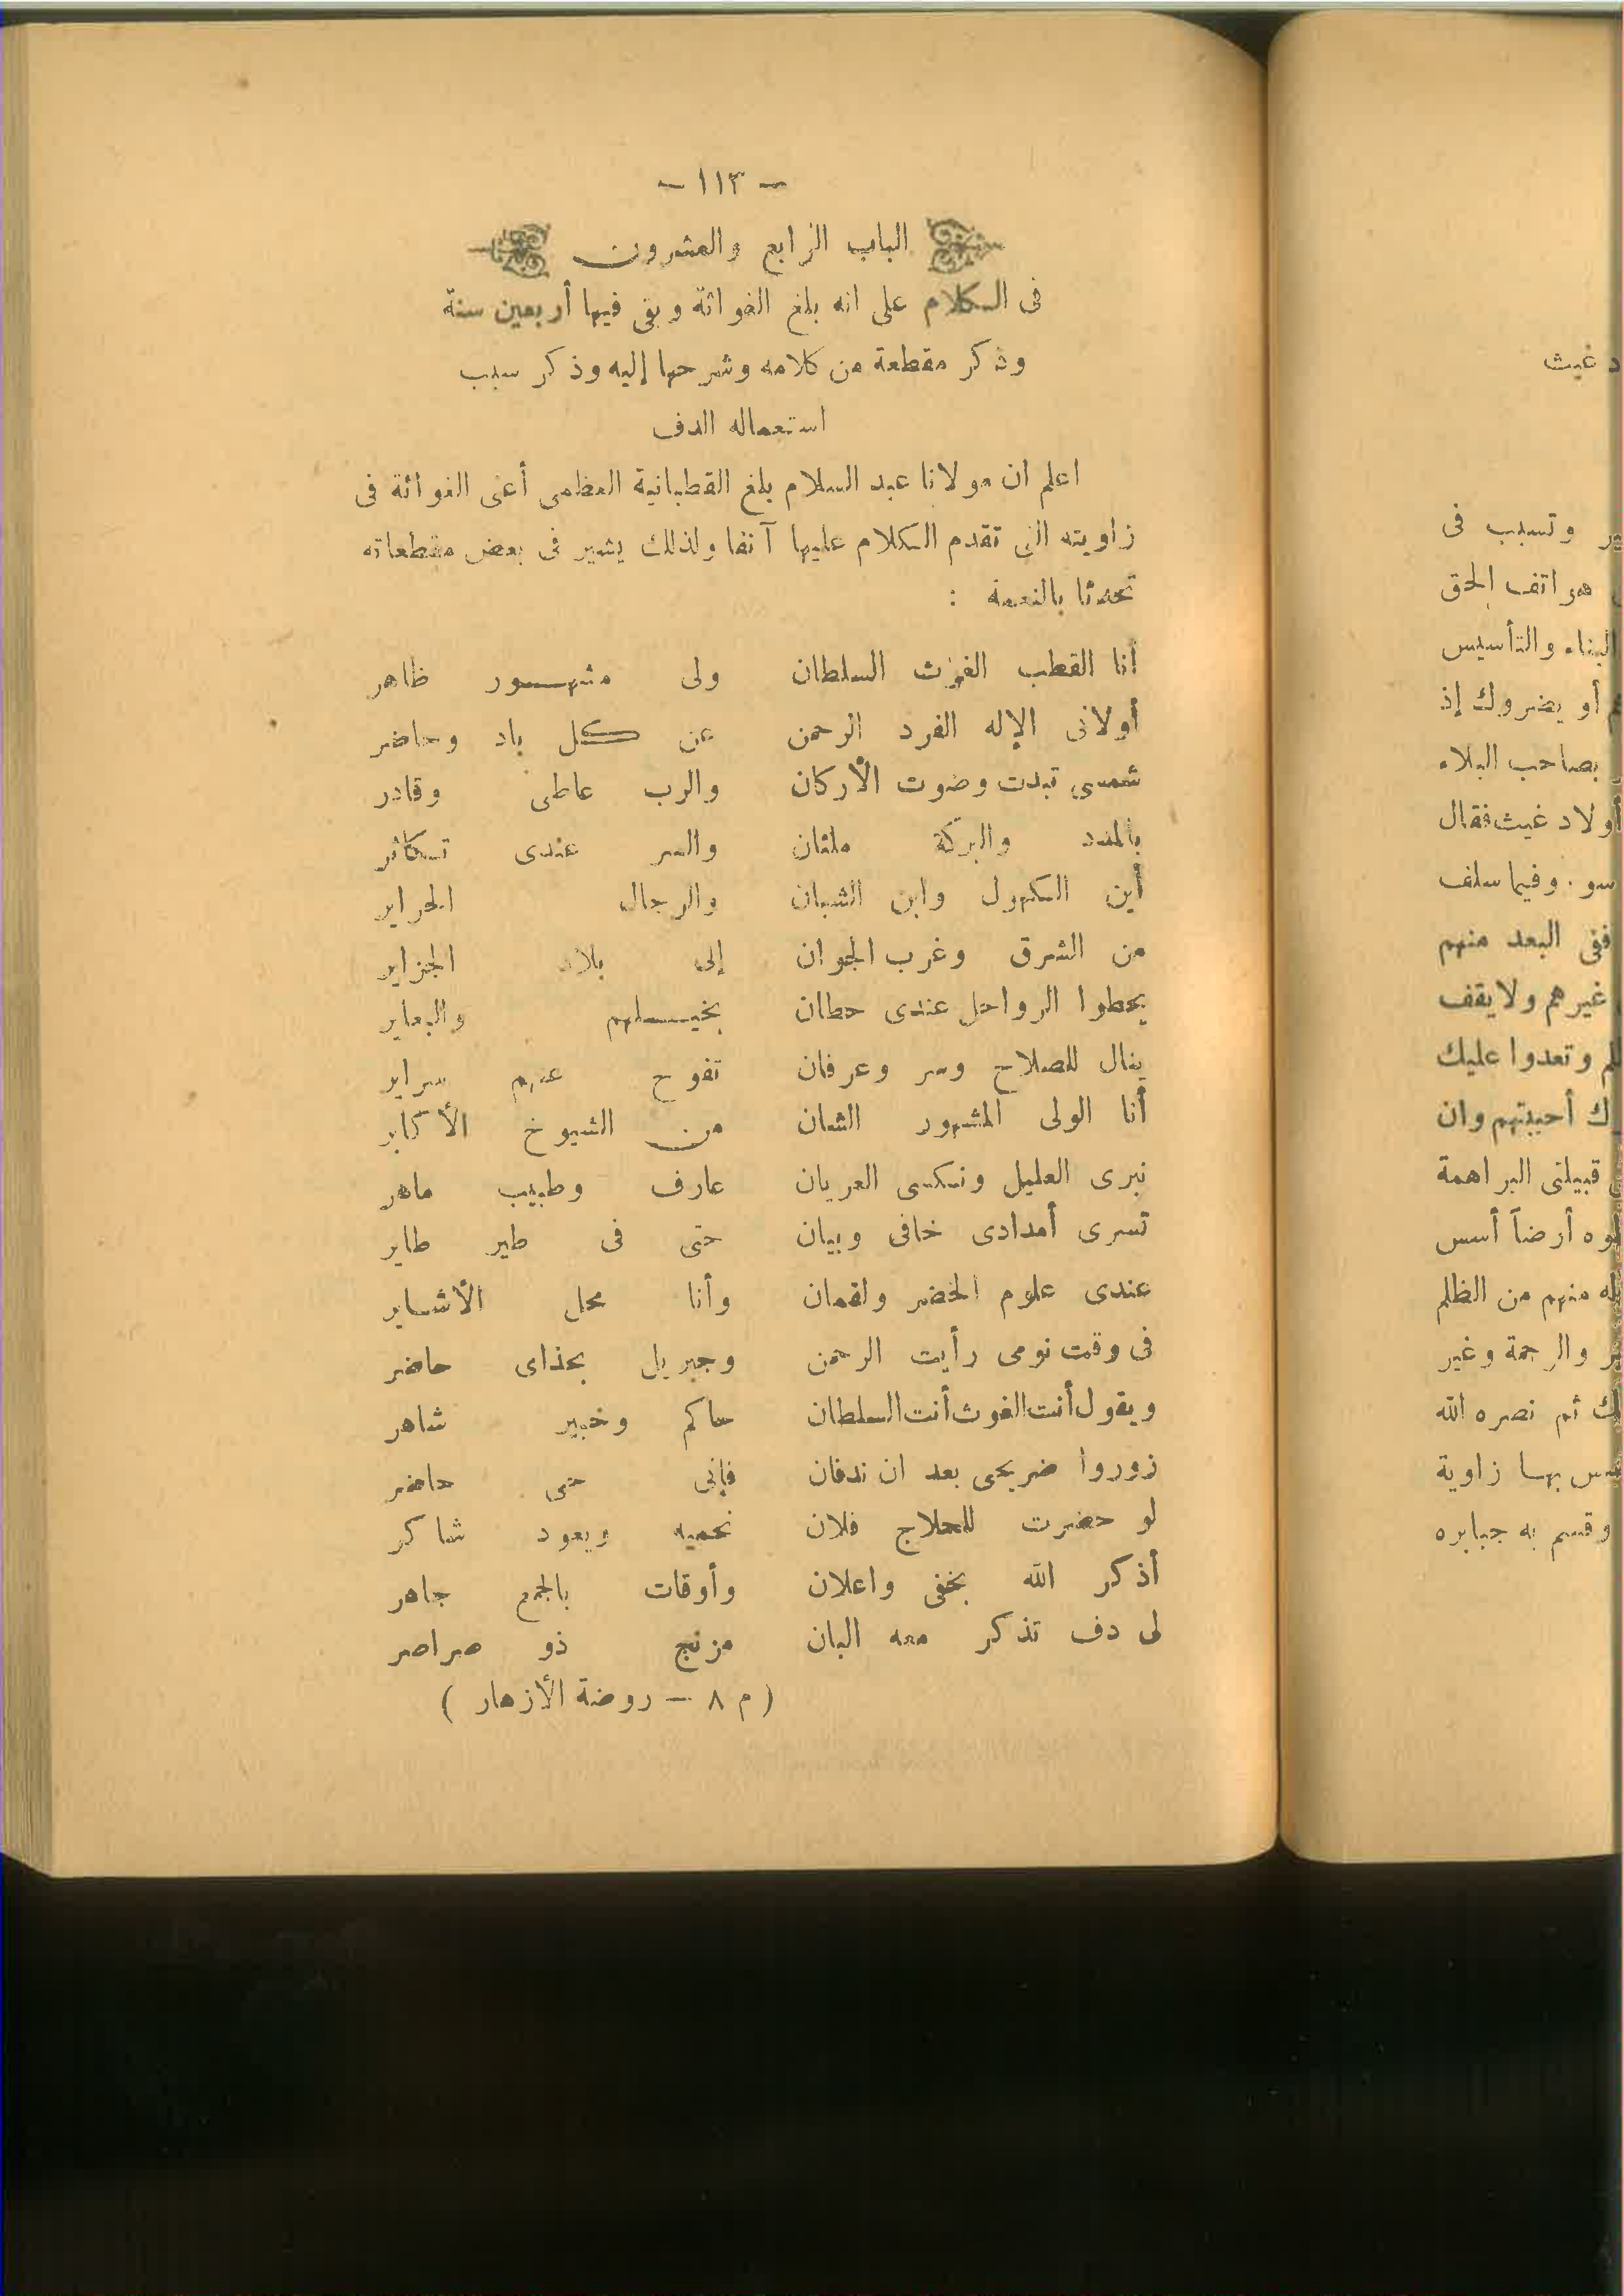 — ١١٣ —
الباب الرابع والعشرون
فى الكلام على انه بلغ الغواثة وبقى فيها أربعين سنة
وذكر مقطعة من كلامه وشرحها إليه وذكر سبب
استعماله الدف
اعلم ان مولانا عبد السلام بلغ القطبانية العظمى أعنى الغواثة فى
زاويته التى تقدم الكلام عليها آنفا ولذلك يشير فى بعض مقطعاته
تحدثا بالنعمة :
أنا القطب الغوث السلطان ولى مشهور ظاهر
أولانى الإله الفرد الرحمن عن كل باد وحاضر
شمسى تبدت وضوت الأركان والرب عاطى وقادر
بالمدد والبركة ملئان والسر عندى تكاثر
أين الكهول وابن الشبان والرجال الحراير
من الشرق وغرب الجوان إلى بلاد الجزاير
يحطوا الرواحل عندى حطان بخيلهم والبعاير
ينال للصلاح وسر وعرفان تفوح عنهم سراير
أنا الولى المشهور الشان من الشيوخ الأكابر
نبرى العليل ونكسى العريان عارف وطبيب ماهر
تسرى أمدادى خافى وبيان حتى فى طير طاير
عندى علوم الخضر ولقمان وأنا محل الأشاير
فى وقت نومى رأيت الرحمن وجبريل بحذاى حاضر
ويقول أنت الغوث أنت السلطان حاكم وخبير شاهر
زوروا ضريحى بعد ان ندفان فإنى حى حاضر
لو حضرت للحلاج فلان نحميه ويعود شاكر
أذكر الله بخفى واعلان وأوقات بالجمع جاهر
لى دف تذكر معه البان مزنج ذو صراصر
( م ٨ — روضة الأزهار )
غيث
وتسبب فى
هواتف الحق
البناء والتأسيس
أو يضروك إذ
بصاحب البلاء
أولاد غيث فقال
سو . وفيما سلف
ففى البعد منهم
غيرهم ولا يقف
وتعدوا عليك
أحببتهم وان
قبيلتى البراهمة
أرضاً أسس
منهم من الظلم
والرحمة وغير
ثم نصره الله
بها زاوية
وقسم به جبابره